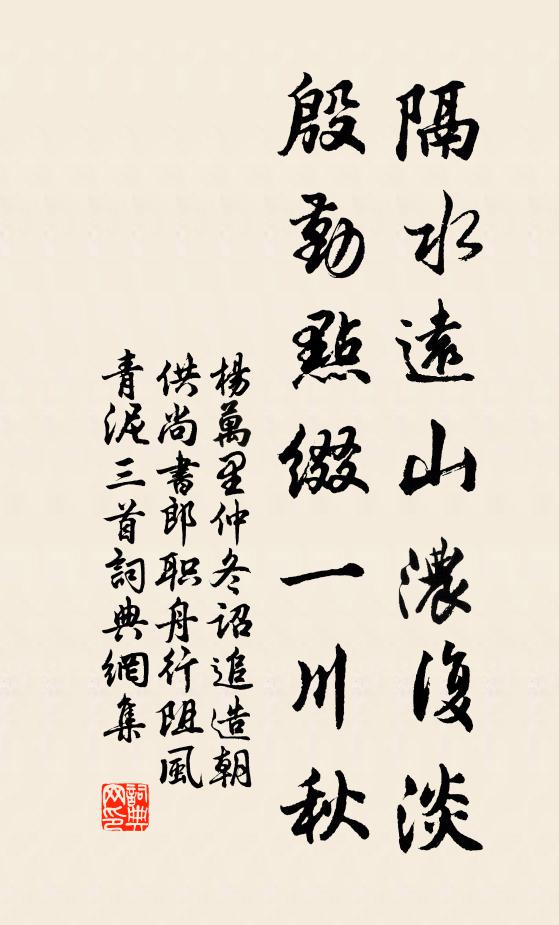 隔水遠山濃復淡
殷勤點綴一川秋
楊萬里仲冬詔追造朝
供尚書郎职舟行阻風
青泥三首詞典網集
詞典网印